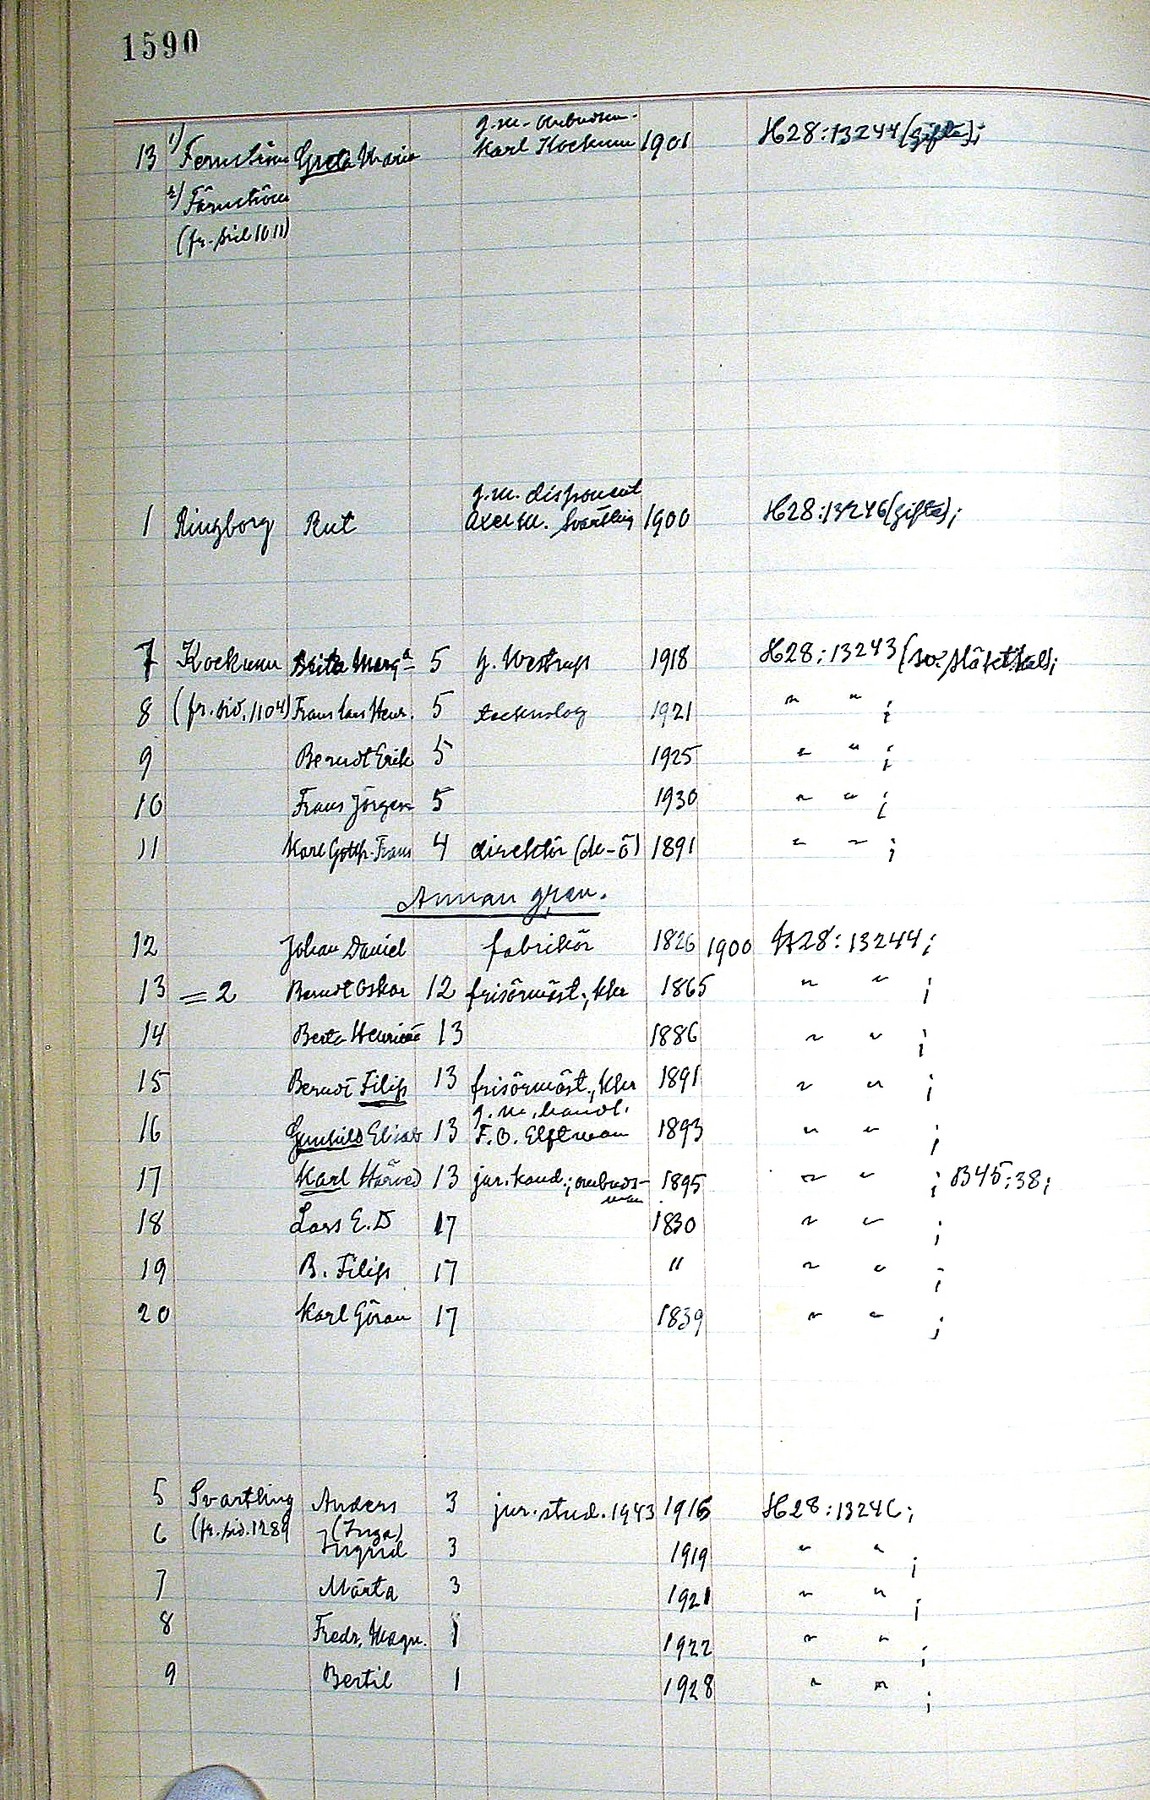 1590
g.m. ombudsm.
13 1/ Fernström Greta Maria Karl Kockum 1901 H28:13244 (gifte);
2/ Färnström
(fr. sid 1011)
g.m. disponent
1 Ringborg Rut Axel M. Svartling 1900 H28:13246 (gifte);
7 Kockum Brita Marg:a 5 g. Westrup 1918 H28:13243
8 (fr. sid. 1104) Frans Lars Henr. 5 teknolog 1921 " " ;
9 Berndt Erik 5 1925 " " ;
10 Frans Jörgen 5 1930 " " ;
11 Karl Gottfr. Frans 4 direktör 1891 " " ;
Annan gren.
12 Johan Daniel fabrikör 1826 1900 H28:13244;
13 = 2 Berndt Oskar 12 frisörmäst., 1865 " " ;
14 Berta 13 1886 " " ;
15 Berndt Filip 13 frisörmäst., 1891 " " ;
g.m. handl.
16 Gunhild Elisab 13 F.O. Elftman 1893 " " ;
17 Karl Härved 13 jur. kand.; ombuds- 1895 " " ; B45:38;
man
18 Lars E. D 17 1830 " " ;
19 B. Filip 17 " " " ;
20 Karl Göran 17 1839 " " ;
5 Svartling Anders 3 jur. stud. 1943 1916 H28:13246;
6 (fr. sid. 1289 (Inga)
Ingrid 3 1919 " " ;
7 Märta 3 1921 " " ;
8 Fredr. Magn. 1 1922 " " ;
9 Bertil 1 1928 " " ;